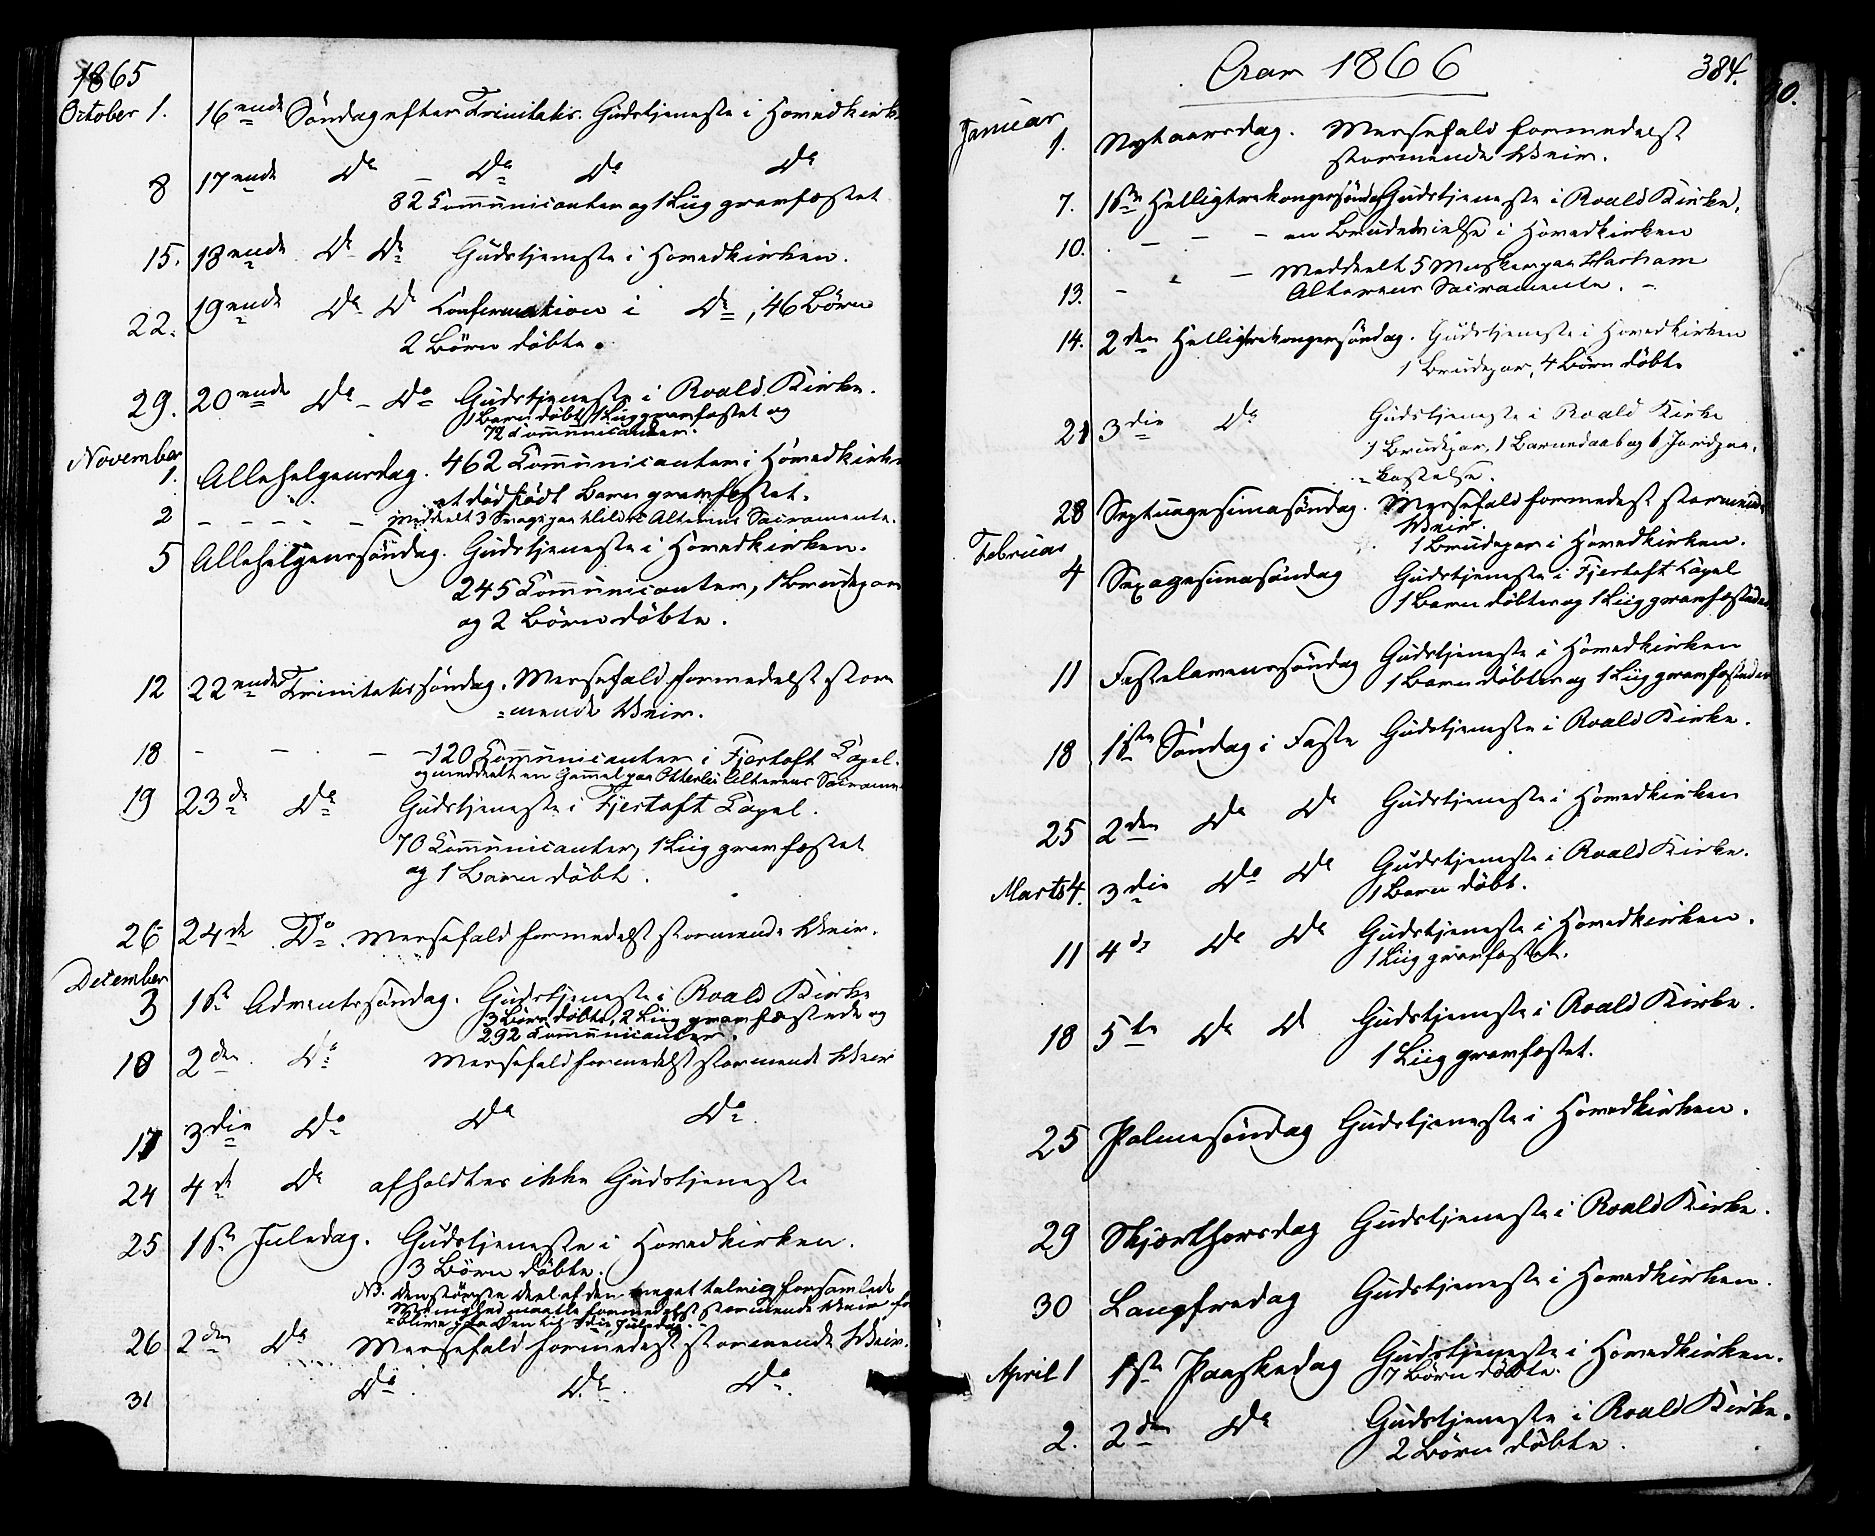 1865
October 1. 16ende Søndag efter Trinitatis. Gudstjeneste i Hovedkirk
8 17ende Do Do Do Do
82 Communicanter og 1 Liig gravfæstet
15. 18ende Do Do Gudstjeneste i Hovedkirken.
22. 19ende Do Do Confirmation i Do, 46 Børn
2 Børn døbte.
29. 20ende Do – Do Gudstjeneste i Roald Kirke.
1 Barn døbt, 1 Liig gravfæstet og
72 Communicanter.
November
1. Allehelgensdag. 462 Communicanter i Hovedkirke
et dødfødt Barn gravfæstet.
2 – – – – – Meddeelt 3 Syge paa Alterens Sacramente.
5 Allehelgenssøndag. Gudstjeneste i Hovedkirken.
245 Communicanter, 1 Brudepar
og 2 Børn døbte.
12 22ende Trinitatissøndag. Messefald formedelst stor
=mende Veir.
18 – – – –120 Communicanter i Fjertoft Capel.
og meddeelt en Gammel paa Otterlei Alterens Sacrame
19 23de Do Gudstjeneste i Fjertoft Capel.
70 Communicanter, 1 Liig gravfæstet
og 1 Barn døbt.
26 24de Do. Messefald formedelst stormende Veir.
December
3 1ste Adventssøndag. Gudstjeneste i Roald Kirke
3 Børn døbte, 2 Liig gravfæstede og
292 Communicanter.
10 2den Do Messefald formedelst stormende Veir
17 3die Do Do Do
24 4de Do afholdtes ikke Gudstjeneste
25 1ste Juledag. Gudstjeneste i Hovedkirken.
3 Børn døbte.
NB. den største Deel af den meget talrig forsamlede
Menighed maatte formedelst stormende Veir
blive paa Øen til 3die Juledag.
26 2den Do Messefald formedelst stormende Veir.
31 Do Do Do
Aar 1866 384.
Januar
1. Nytaarsdag. Messefald formedelst
stormende Veir.
7. 1ste Helligtrekongerssøndag Gudstjeneste i Roald Kirke.
10. – – – en Brudevielse i Hovedkirken
13. – – – Meddeelt 5 Mennesker paa Harham
Alterens Sacramente. –
14. 2den Helligtrekongerssøndag. Gudstjeneste i Hovedkirken
1 Brudepar, 4 Børn døbte
21 3die Do Gudstjeneste i Roald Kirke
1 Brudepar, 1 Barnedaab og 6 Jordpaa-
=kastelse.
28 Septuagesimasøndag. Messefald formedelst stormende
Veir.
1 Brudepar i Hovedkirken.
Februar
4 Sexagesimasøndag Gudstjeneste i Fjertoft Capel
1 Barn døbtes og 1 Liig gravfæstedes
11 Fastelavenssøndag Gudstjeneste i Hovedkirken
1 Barn døbtes og 1 Liig gravfæstedes
18 1ste Søndag i Faste Gudstjeneste i Roald Kirke.
25 2den Do Do Gudstjeneste i Hovedkirken
Marts 4. 3die Do Do Gudstjeneste i Roald Kirke.
1 Barn døbt.
11 4de Do Do Gudstjeneste i Hovedkirken.
1 Liig gravfæstet.
18 5te Do Do Gudstjeneste i Roald Kirke.
1 Liig gravfæstet.
25 Palmesøndag Gudstjeneste i Hovedkirken.
29 Skjærthorsdag Gudstjeneste i Roald Kirke.
30 Langfredag Gudstjeneste i Hovedkirken.
April 1 1ste Paaskedag Gudstjeneste i Hovedkirken.
7 Børn døbte.
2. 2den Do Gudstjeneste i Roald Kirke.
2 Børn døbte.